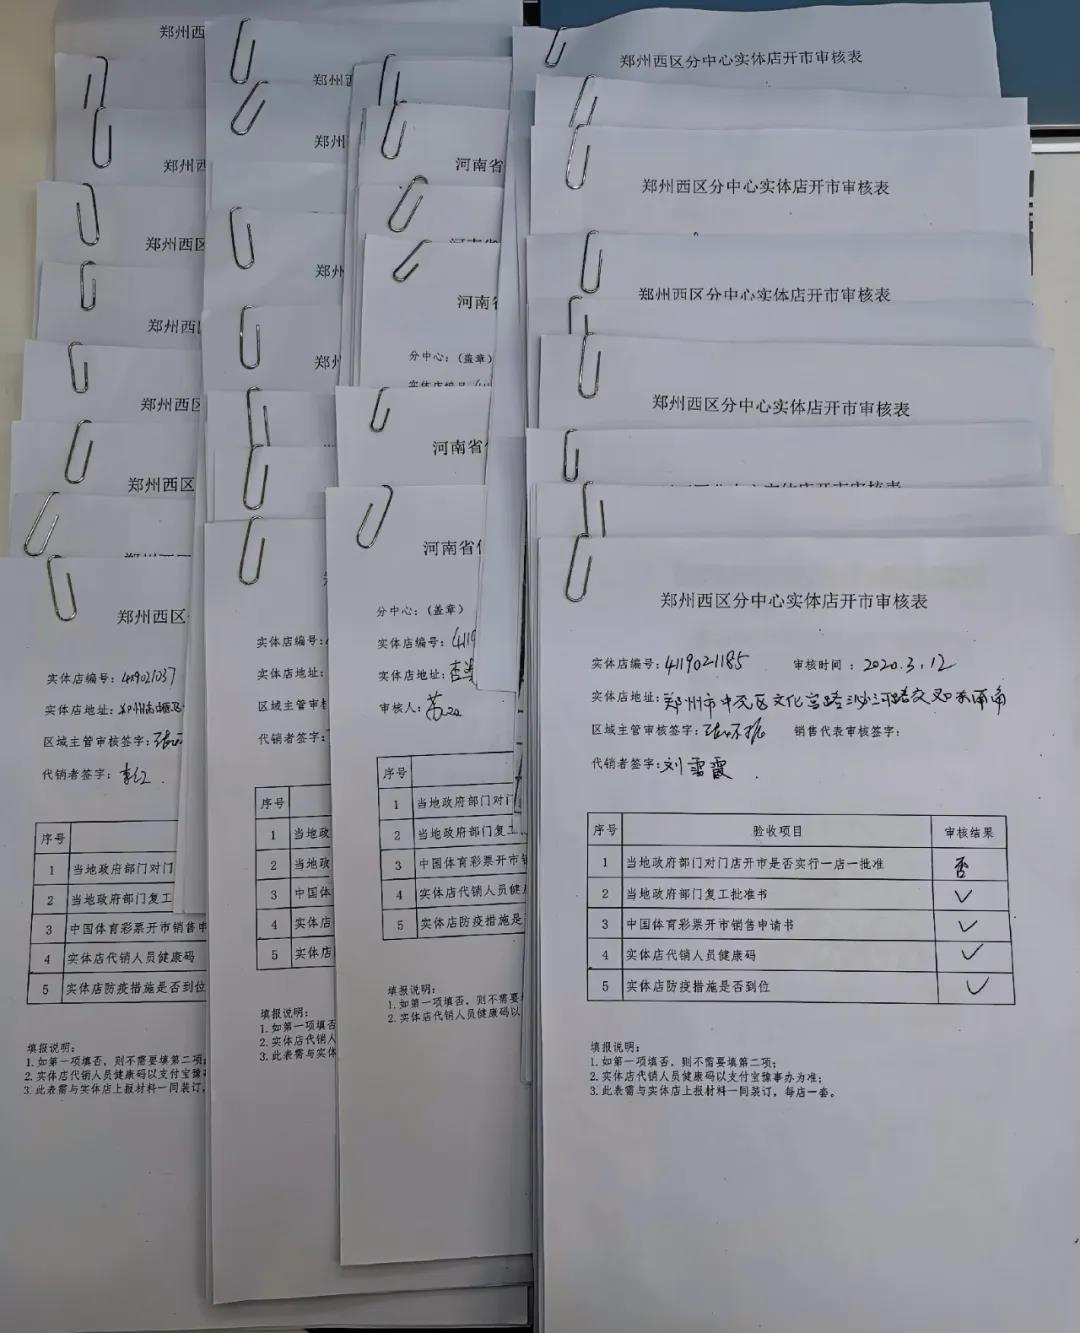 郑州西
郑州西
郑州西区
郑州西区
郑州西区
郑州西区
郑州西区
实体店编号:4119021037
实体店地址:
区域主管审核签字:
代销者签字:李红
序号
1 当地政府部门对门
2 当地政府部门复工
3 中国体育彩票开市销售申
4 实体店代销人员健康码
5 实体店防疫措施是否到位
填报说明:
1.如第一项填否，则不需要填第二项;
2.实体店代销人员健康码以支付宝豫事
3.此表需与实体店上报材料一同装订，
郑州
郑州
郑州
郑州
实体店编号:
实体店地址:
区域主管审核
代销者签字:
序号
1 当地政
2 当地政
3 中国体
4 实体店
5 实体店
填报说明:
1.如第一项填否
2.实体店代销人
3.此表需与实体
河南省
河南省
河南省
分中心:(盖章)
河南省
河南省
分中心:(盖章)
实体店编号:4119
实体店地址:
审核人:
序号
1 当地政府部门对门
2 当地政府部门复工
3 中国体育彩票开市销
4 实体店代销人员健康
5 实体店防疫措施是
填报说明:
1.如第一项填否，则不需要
2.实体店代销人员健康码以
郑州西区分中心实体店开市审核表
郑州西区分中心实体店开市审核表
郑州西区分中心实体店开市审核表
郑州西区分中心实体店开市审核表
郑州西区分中心实体店开市审核表
实体店编号:4119021185 审核时间:2020.3.12
实体店地址:郑州市中原区文化宫路沙河路交叉口西南角
区域主管审核签字: 销售代表审核签字:
代销者签字:刘雪霞
序号 验收项目 审核结果
1 当地政府部门对门店开市是否实行一店一批准 否
2 当地政府部门复工批准书 ✓
3 中国体育彩票开市销售申请书 ✓
4 实体店代销人员健康码 ✓
5 实体店防疫措施是否到位 ✓
填报说明:
1.如第一项填否，则不需要填第二项;
2.实体店代销人员健康码以支付宝豫事办为准;
3.此表需与实体店上报材料一同装订，每店一套。